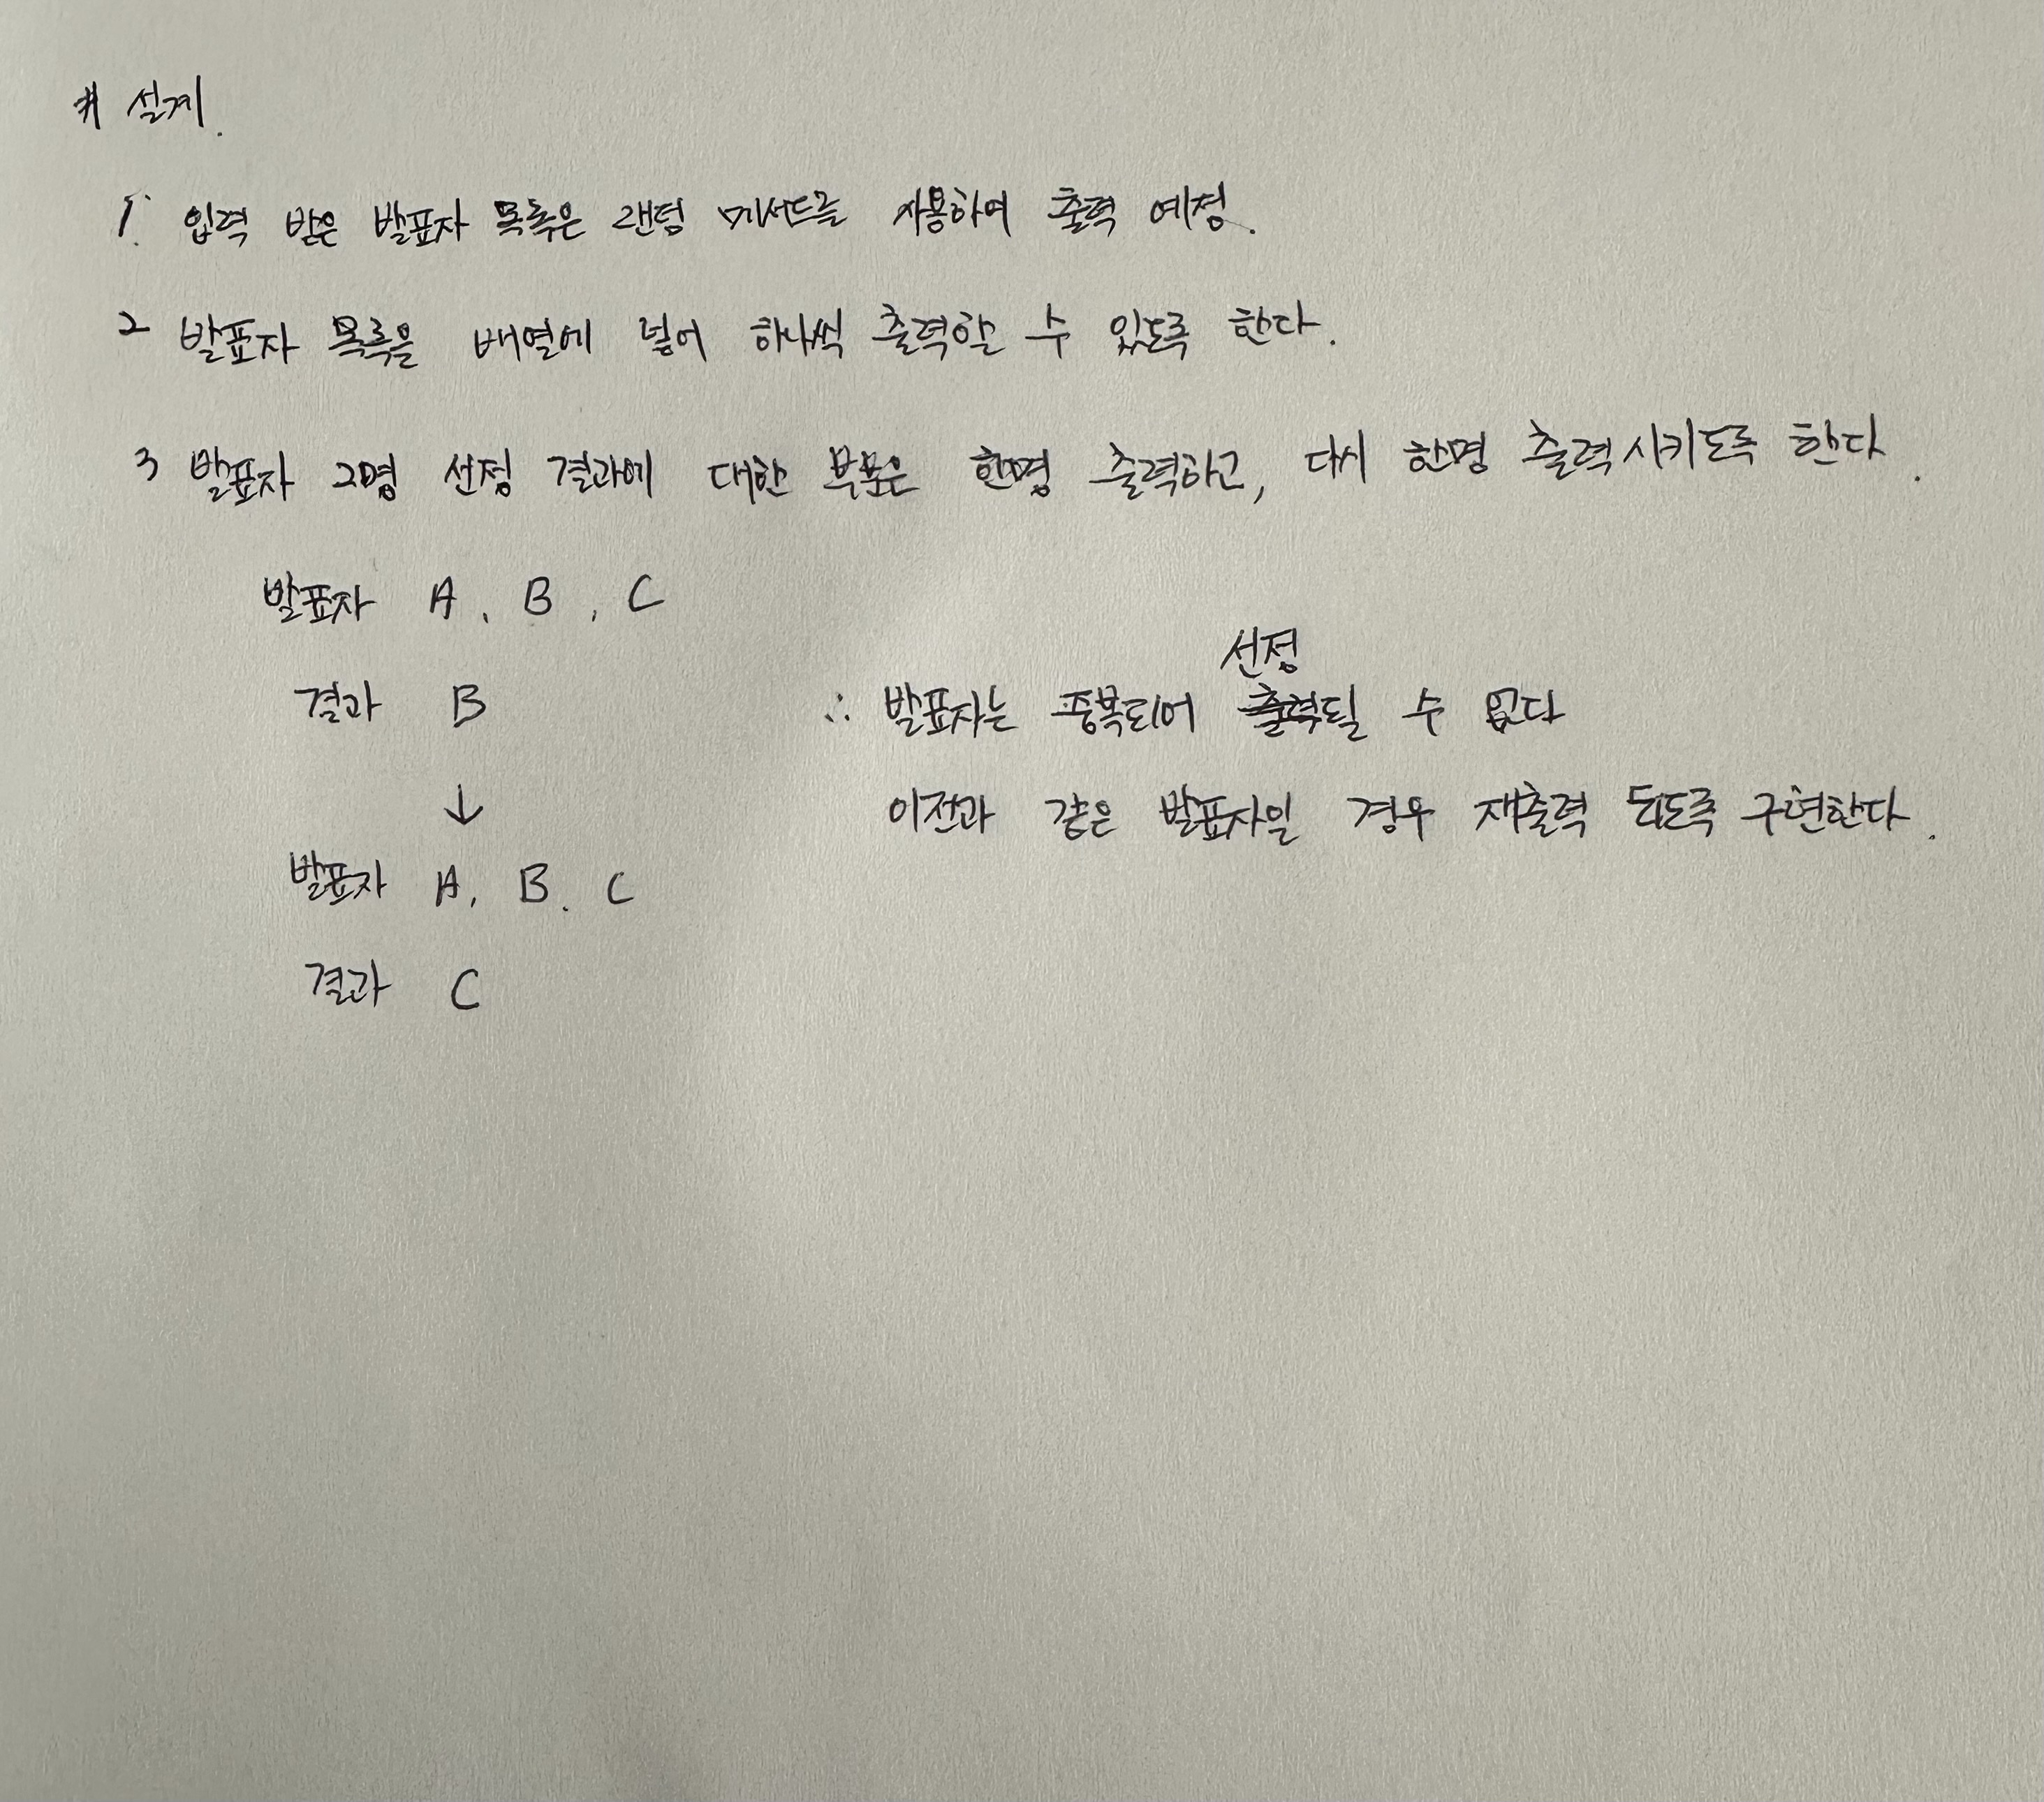 # 설계.
1. 입력 받은 발표자 목록은 랜덤 메서드를 사용하여 출력 예정.
2 발표자 목록을 배열에 넣어 하나씩 출력할 수 있도록 한다.
3 발표자 2명 선정 결과에 대한 부분은 한명 출력하고, 다시 한명 출력시키도록 한다.
발표자 A, B, C
결과 B
↓
발표자 A, B. C
결과 C
선정
∴ 발표자는 중복되어 출력될 수 없다
이전과 같은 발표자일 경우 재출력 되도록 구현한다.